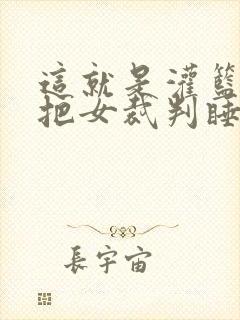 這就是灌籃
把女裁判睡
長宇宙